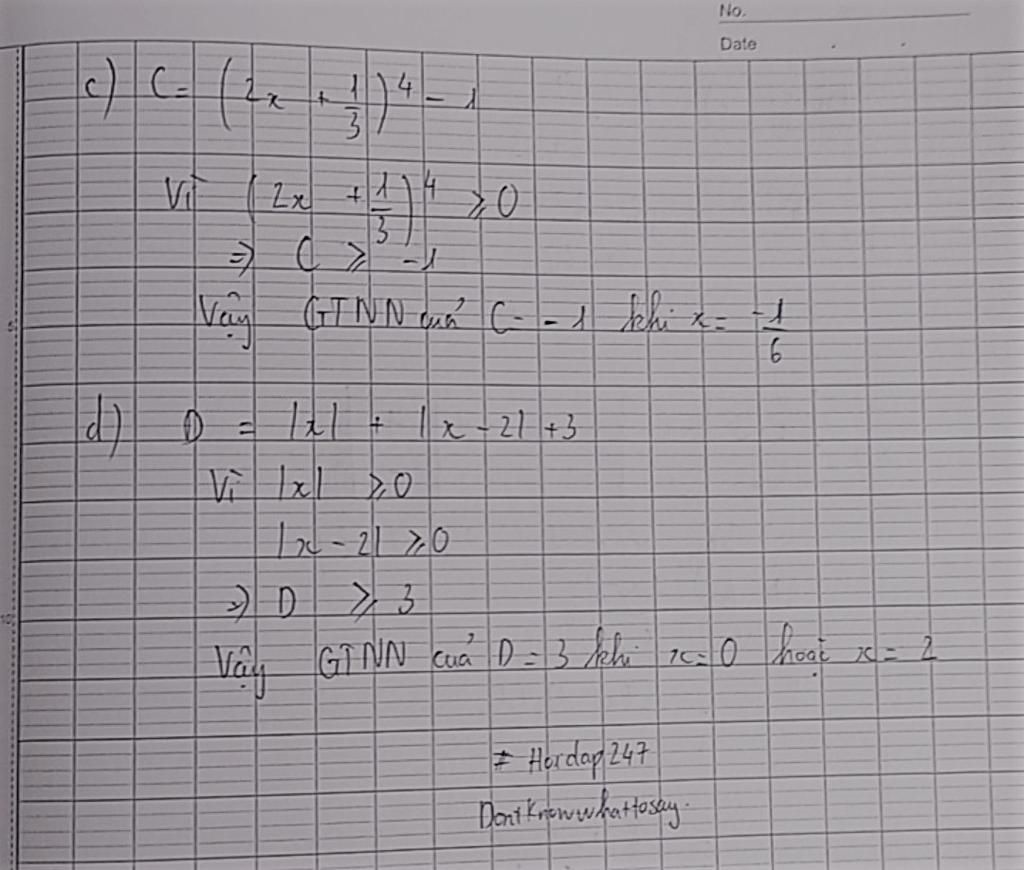 No.
Date
c) C = (2x + 1/3)^4 - 1
Vì (2x + 1/3)^4 ⩾ 0
=> C ⩾ -1
Vậy GTNN của C = -1 khi x = -1/6
d) D = |x| + |x - 2| + 3
Vì |x| ⩾ 0
|x - 2| ⩾ 0
=> D ⩾ 3
Vậy GTNN của D = 3 khi x = 0 hoặc x = 2
# Hoidap247
DontKnowwhattosay.